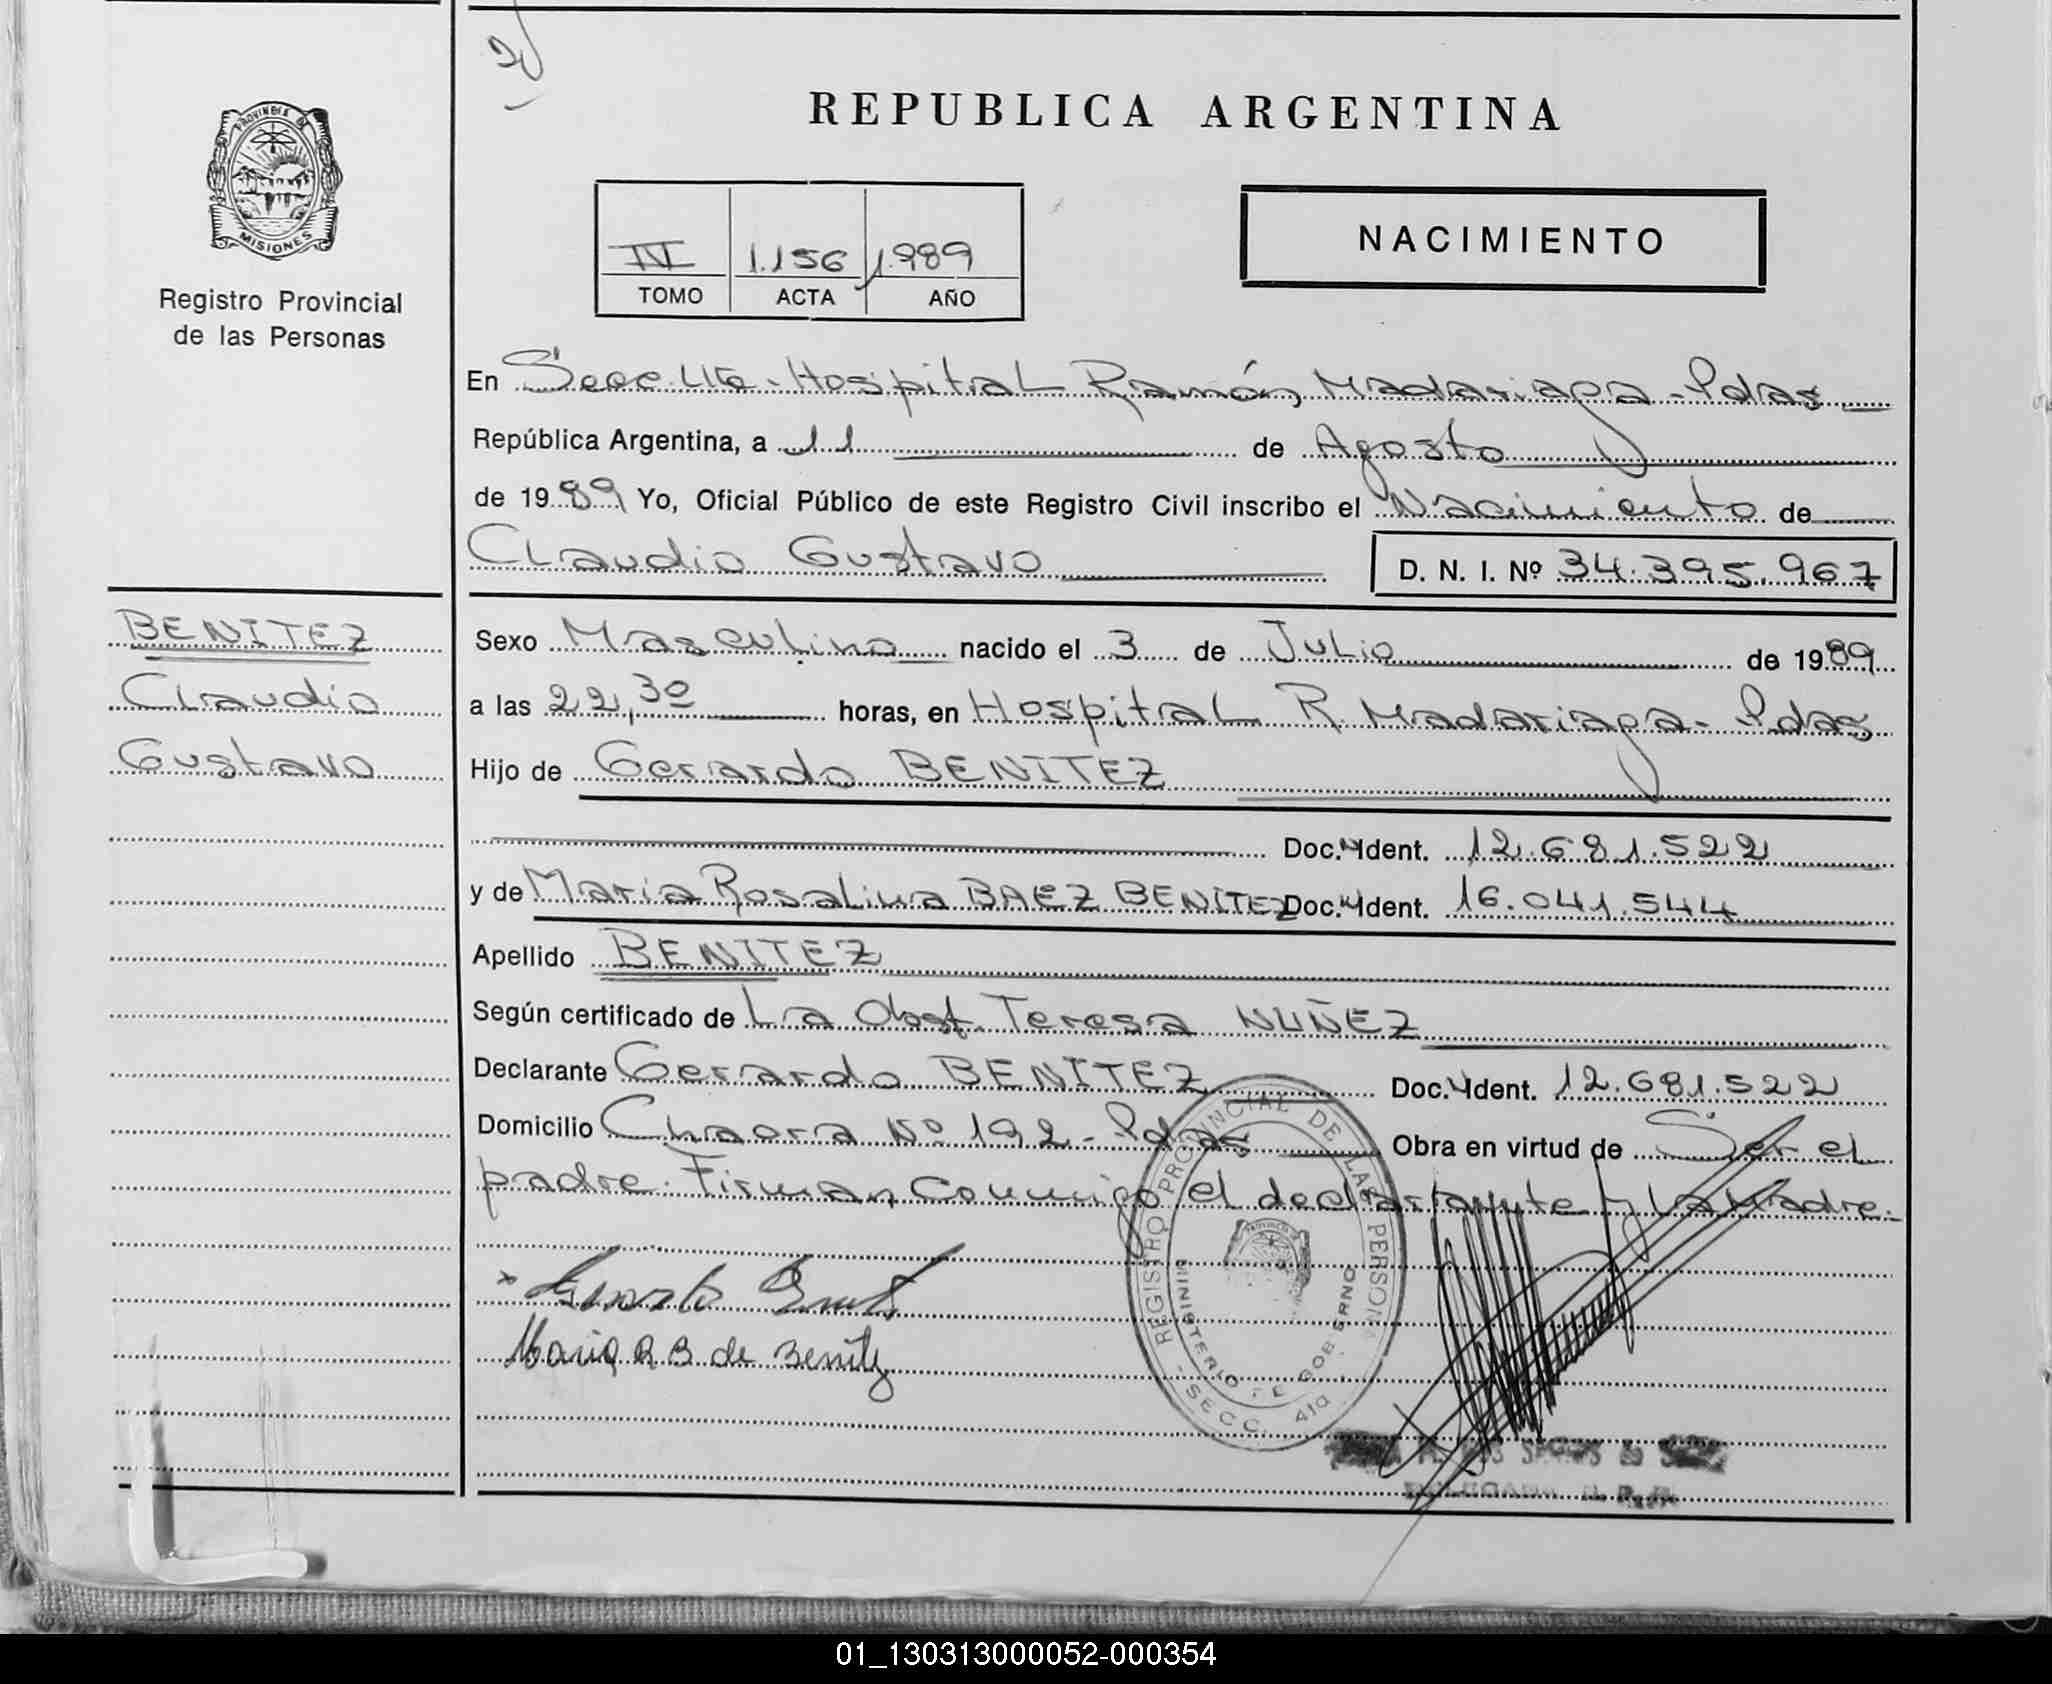 REPUBLICA ARGENTINA
PROVINCIA DE
MISIONES
Registro Provincial
de las Personas
IV 1.156 1.989
TOMO ACTA AÑO
NACIMIENTO
En Secc. 41a - Hospital Ramón Madariaga - Pdas
República Argentina, a 11 de Agosto
de 1989 Yo, Oficial Público de este Registro Civil inscribo el Nacimiento de
Claudio Gustavo D. N. I. Nº 34.395.967
BENITEZ
Claudio
Gustavo
Sexo Masculino nacido el 3 de Julio de 1989
a las 22,30 horas, en Hospital R. Madariaga - Pdas
Hijo de Gerardo BENITEZ
Doc. Ident. 12.681.522
y de María Rosalina BAEZ BENITEZ Doc. Ident. 16.041.544
Apellido BENITEZ
Según certificado de La Obst. Teresa NUÑEZ
Declarante Gerardo BENITEZ Doc. Ident. 12.681.522
Domicilio Chacra Nº 192 - Pdas Obra en virtud de Ser el
padre. Firman conmigo el declarante y la Madre.-
Maria R B de Benitz
REGISTRO PROVINCIAL DE LAS PERSONAS
MINISTERIO DE GOBIERNO
- SECC. 41a -
01_130313000052-000354